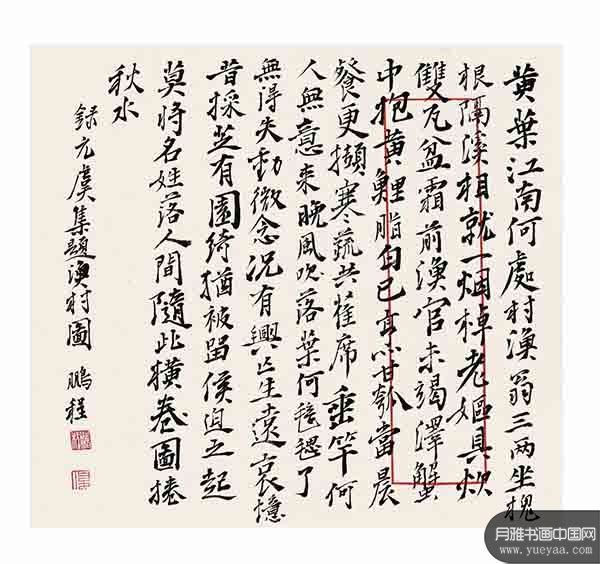 黄葉江南何處村漁翁三两坐槐
根隔溪相就一烟棹老嫗具炊
雙瓦盆霜前漁官未竭澤蟹
中抱黄鯉脂白已烹甘瓠當晨
餐更擷寒蔬共萑席垂竿何
人無意來晚風吹落葉何了
無得失動微念況有興亡生遠哀憶
昔採芝有園綺猶被留侯迫之起
莫將名姓落人間隨此横卷圖捲
秋水
錄元虞集題漁村圖 鵬程
月雅书画中国网
www.yueyaa.com